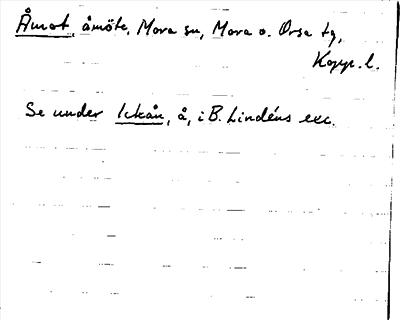 Åmot, åmöte, Mora sn, Mora o. Orsa tg,
Kopp. l.
Se under Ickån, å, i B. Lindéns exc.